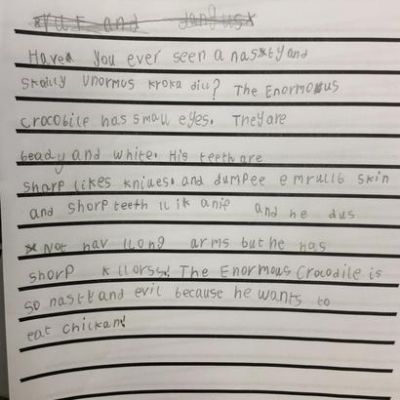 Have you ever seen a nasty and
skaily unormus kroka dill? The Enormous
crocobile has small eyes. They are
beady and white. His teeth are
sharp likes knives. and dumpee emrullb skin
and shorp teeth llik anif and he dus
Not hav llong arms but he has
shorp kllorss! The Enormous Crocodile is
so nasty and evil because he wants to
eat chickan!